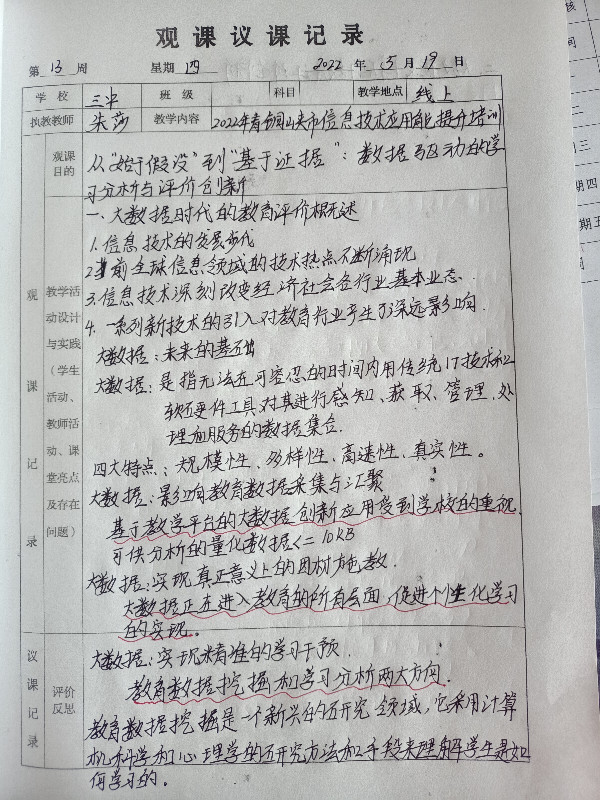 观课议课记录
第 13 周 星期 四 2022 年 5 月 19 日
学校 三中 班级 科目 教学地点 线上
执教教师 朱莎 教学内容 2022年青铜峡市信息技术应用能提升培训
观课目的 从“始于假设”到“基于证据”：数据驱动的学
习分析与评价创新
观课记录
教学活动设计与实践（学生活动、教师活动、课堂亮点及存在问题）
一、大数据时代的教育评价概述
1.信息技术的发展时代
2.当前全球信息领域的技术热点不断涌现
3.信息技术深刻改变经济社会各行业基本业态.
4.一系列新技术的引入对教育行业产生了深远影响.
大数据：未来的基础
大数据：是指无法在可容忍的时间内用传统IT技术和
软硬件工具对其进行感知、获取、管理、处
理和服务的数据集合.
四大特点：规模性、多样性、高速性、真实性。
大数据：影响教育数据采集与汇聚
基于教学平台的大数据创新应用受到学校的重视.
可供分析的量化数据<=10KB
大数据：实现真正意义上的因材施教.
大数据正在进入教育的所有层面，促进个性化学习
的实现。
议课记录 评价反思
大数据：实现精准的学习干预.
教育数据挖掘和学习分析两大方向.
教育数据挖掘是一个新兴的研究领域，它采用计算
机科学和心理学的研究方法和手段来理解学生是如
何学习的。
核
间
三
期四
期五